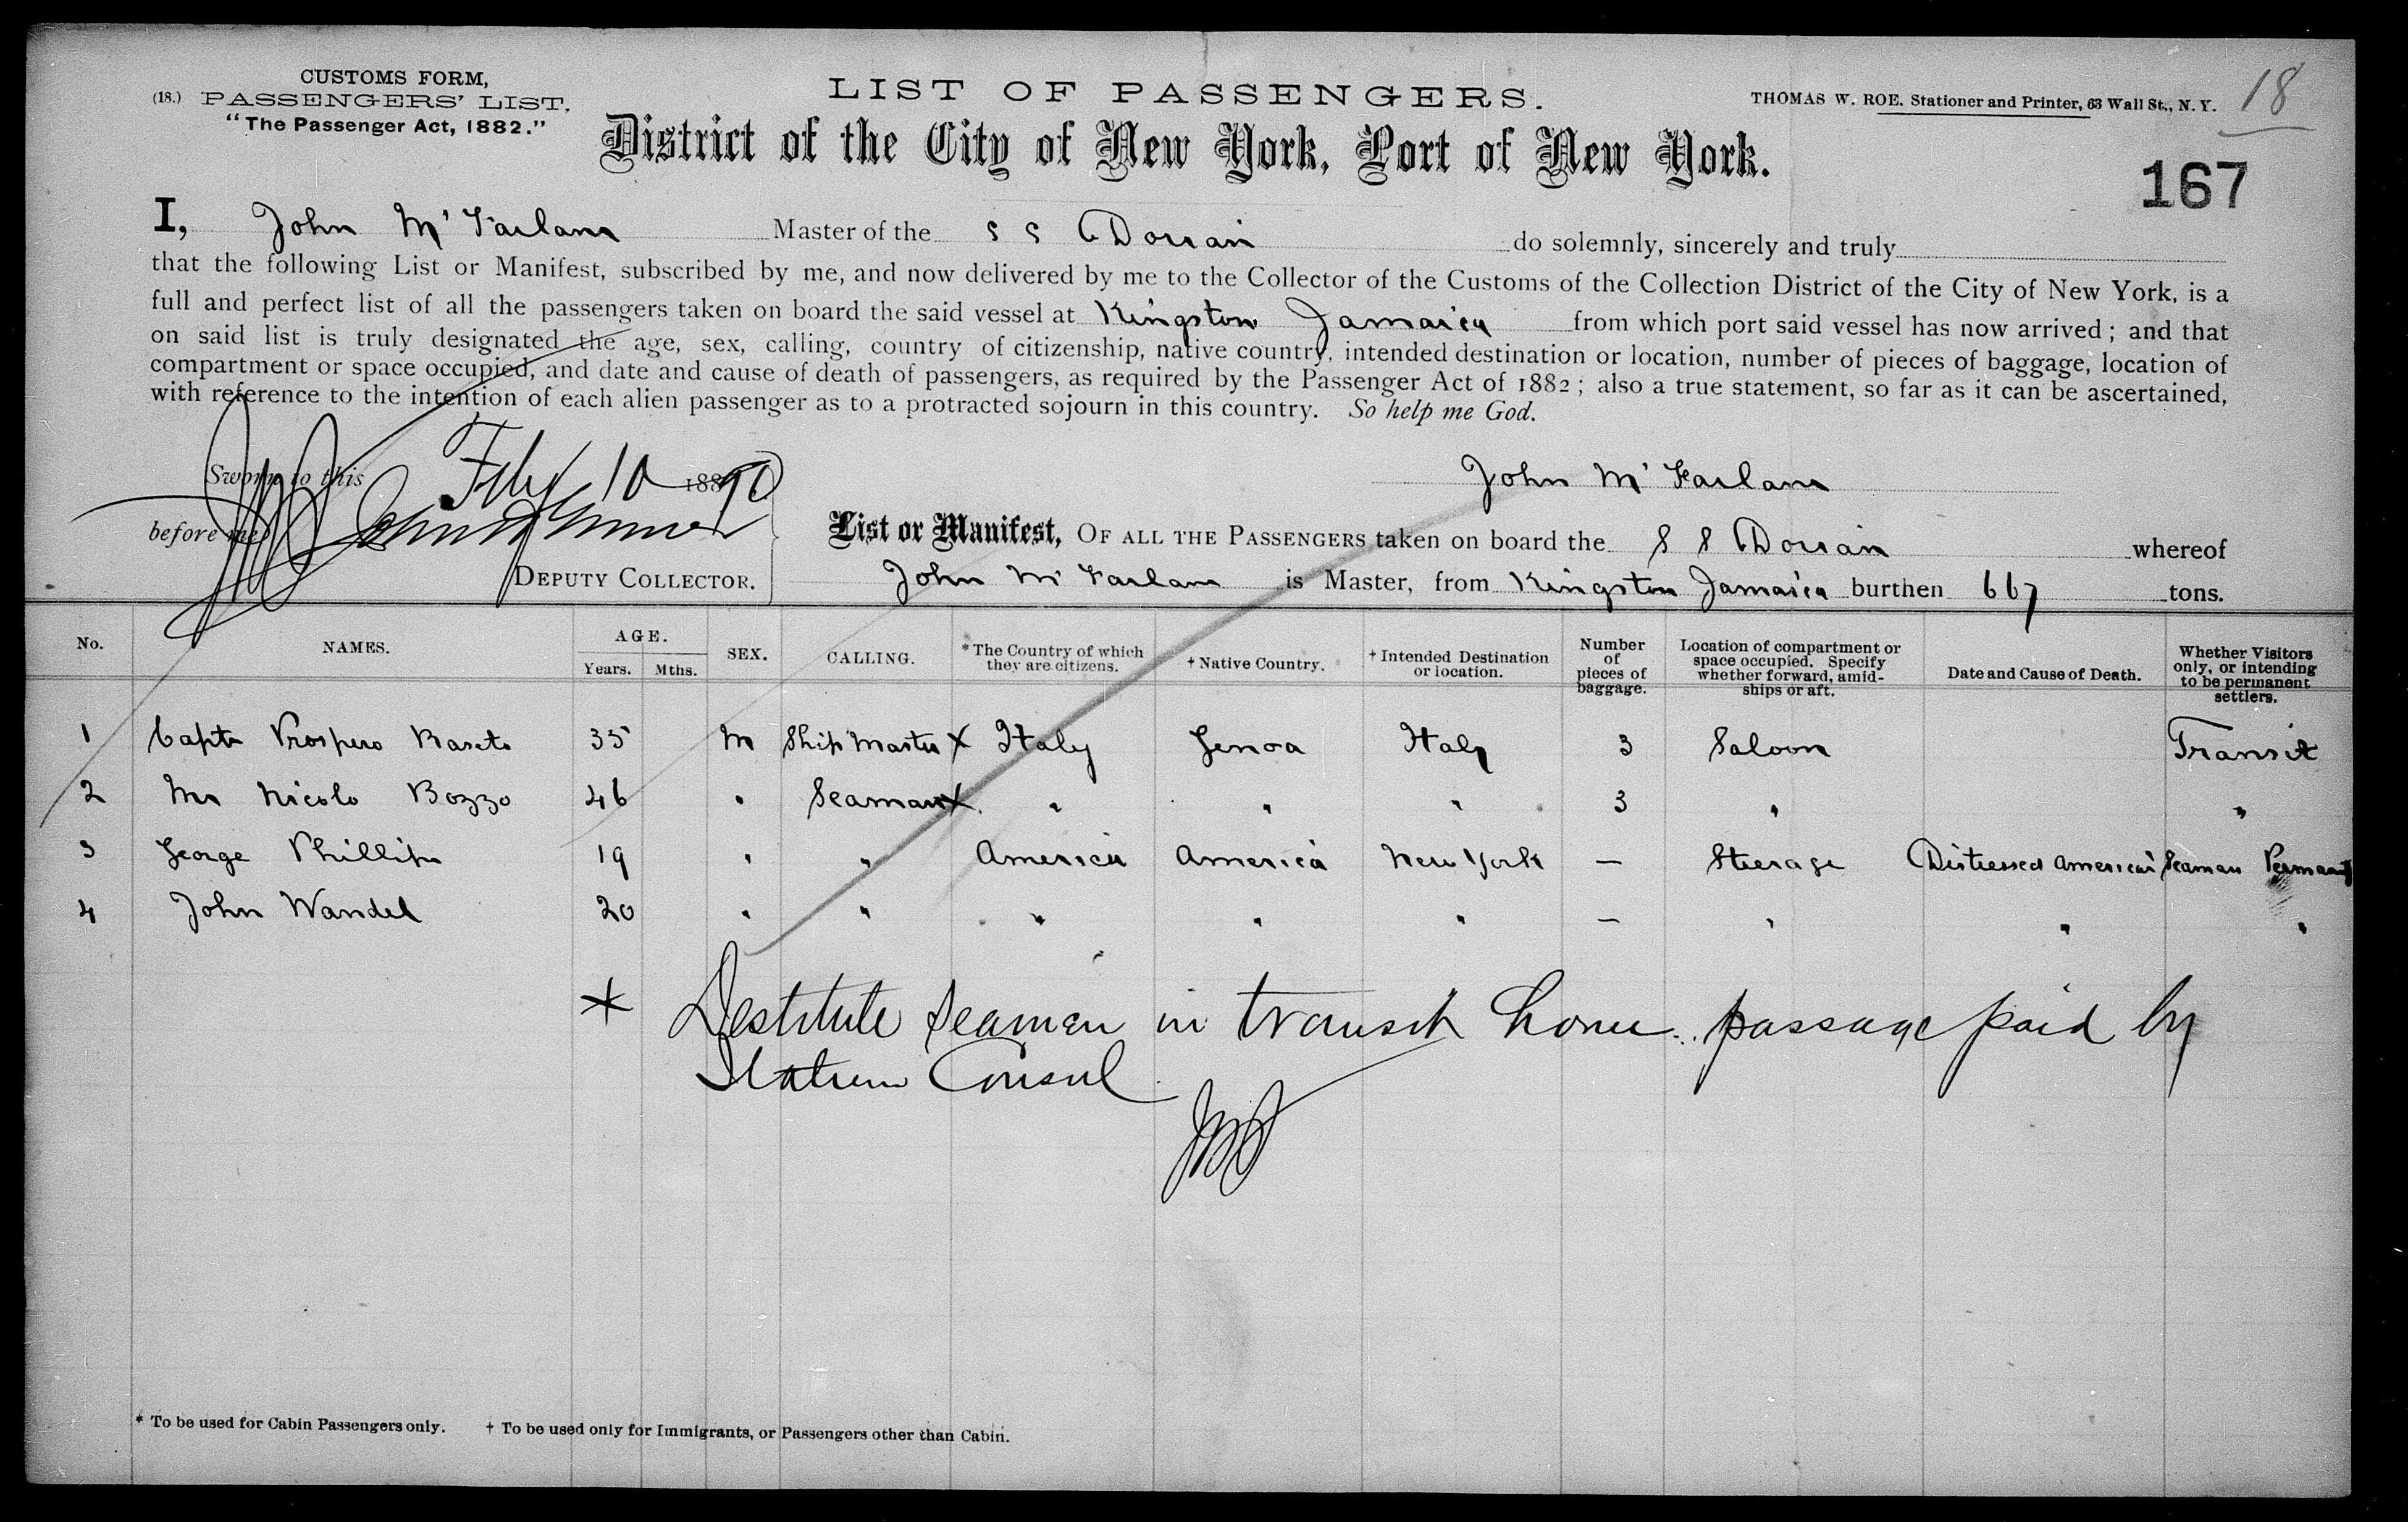 CUSTOMS FORM,
(18.) PASSENGERS' LIST.
"The Passenger Act, 1882."
LIST OF PASSENGERS.
THOMAS W. ROE. Stationer and Printer, 63 Wall St., N. Y.
18
District of the City of New York, Port of New York.
167
I, John McFarlane Master of the S S Dorian do solemnly, sincerely and truly
that the following List or Manifest, subscribed by me, and now delivered by me to the Collector of the Customs of the Collection District of the City of New York, is a
full and perfect list of all the passengers taken on board the said vessel at Kingston Jamaica from which port said vessel has now arrived; and that
on said list is truly designated the age, sex, calling, country of citizenship, native country, intended destination or location, number of pieces of baggage, location of
compartment or space occupied, and date and cause of death of passengers, as required by the Passenger Act of 1882; also a true statement, so far as it can be ascertained,
with reference to the intention of each alien passenger as to a protracted sojourn in this country. So help me God.
Sworn to this Feby 10 1890
John McFarlane
before me
DEPUTY COLLECTOR.
List or Manifest, OF ALL THE PASSENGERS taken on board the S S Dorian whereof
John McFarlane is Master, from Kingston Jamaica burthen 667 tons.
No. NAMES. AGE. Years. Mths. SEX. CALLING. * The Country of which they are citizens. † Native Country. † Intended Destination or location. Number of pieces of baggage. Location of compartment or space occupied. Specify whether forward, amidships or aft. Date and Cause of Death. Whether Visitors only, or intending to be permanent settlers.
1 Captn Prospero 35 M Ship Master X Italy Genoa Italy 3 Saloon Transit
2 Mr Nicolo Bozzo 46 " Seaman X " " " 3 " "
3 George Phillips 19 " " America America New York — Steerage Distressed American Seaman Permanent
4 John Wandel 20 " " " " " — " " "
* Destitute seamen in transit home. passage paid by
Italian Consul
* To be used for Cabin Passengers only. † To be used only for Immigrants, or Passengers other than Cabin.